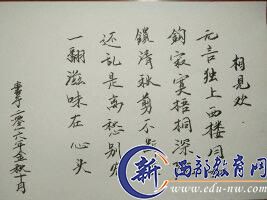 相見欢
无言独上西楼月
钩寂寞梧桐深
鎖清秋剪不
还乱是离愁别
一翻滋味在心头
二零一六年金秋十月
西部教育网
www.edu-nw.com